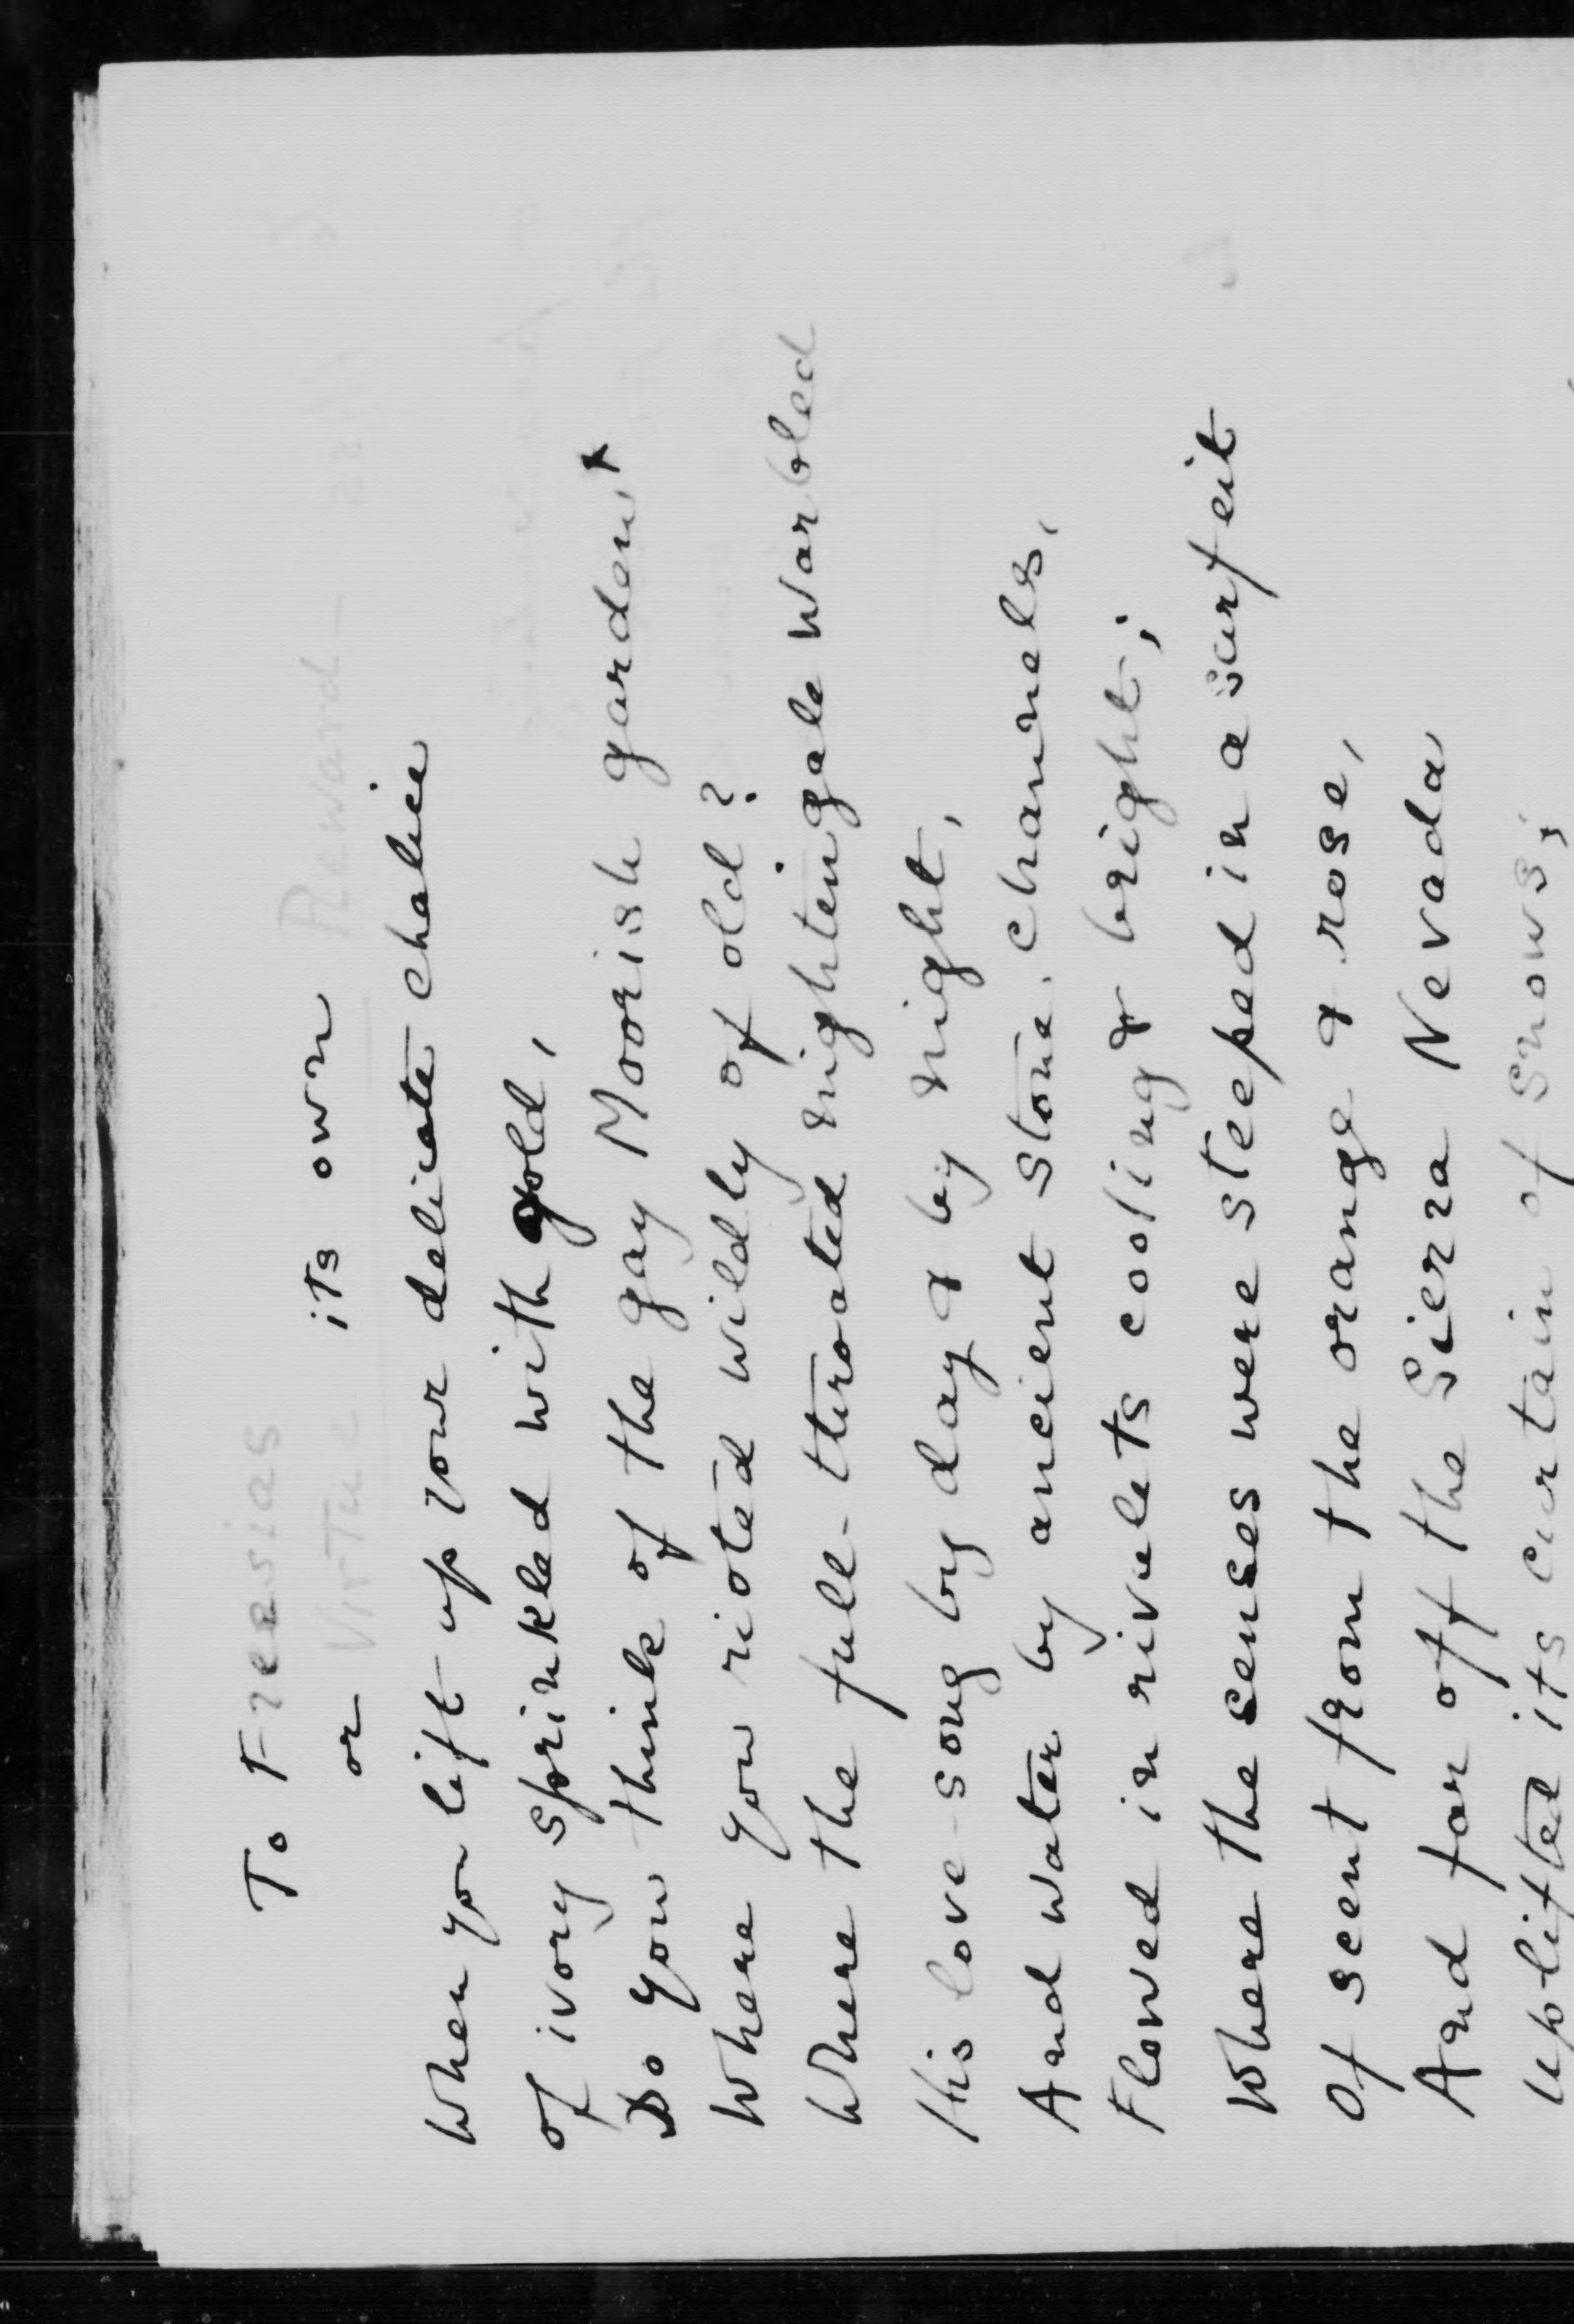 To Freesias
or Virtue its own Reward -
When you lift up your delicate chalice
of ivory sprinkled with gold,
Do you think of the gay Moorish garden,
Where you rioted wildly of old?
Where the full-throated nightingale warbled
His love-song by day & by night,
And water by ancient stone channels,
Flowed in rivulets cooling & bright;
Where the senses were steeped in a surfeit
Of scent from the orange & rose,
And far off the Sierra Nevada
Uplifted its curtain of snows;